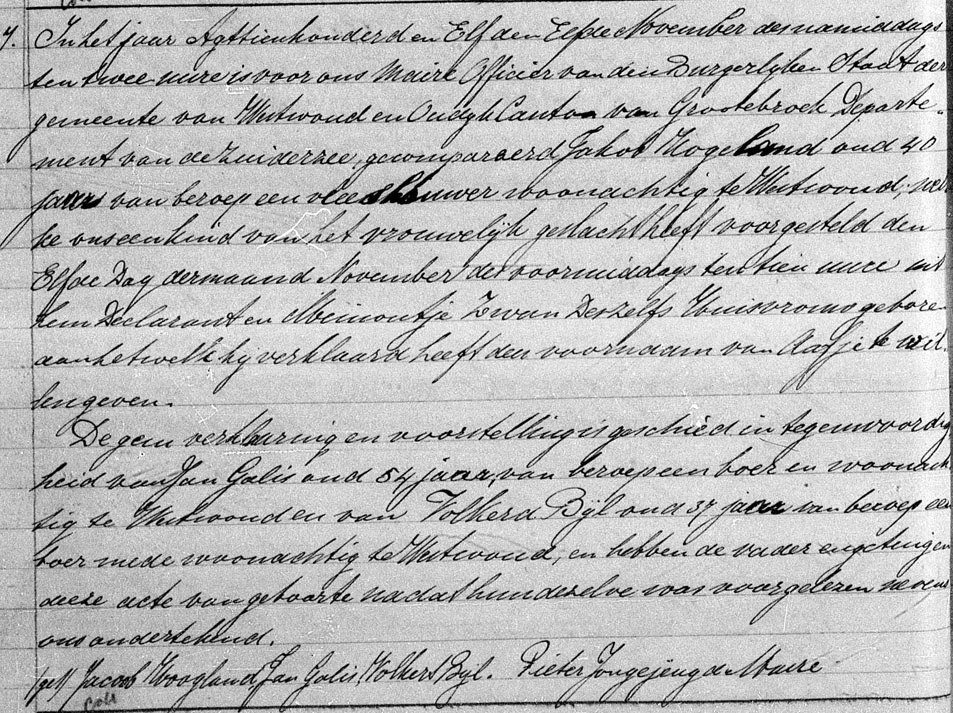 7. In het jaar Agttienhonderd en Elf den Elfde November des namiddags
ten twee ure is voor ons Maire Officier van den Burgerlyken Staat der
gemeente van Westwoud en Oudyk Canton van Grootebroek Departe-
ment van de Zuiderzee, gecompareerd Jakob Hogeland oud 40
jaar van beroep een vleeschhouwer woonachtig te Westwoud, wel-
ke ons een kind van het vrouwelijk geslacht heeft voorgesteld den
Elfde Dag der maand November des voormiddags ten tien ure uit
hem Declarant en Meinoutje Zwan Deszelfs Huisvrouw geboren
aan het welk hij verklaard heeft den voornaam van Aafje te wil-
len geven.
De gem verklaring en voorstelling is geschied in tegenwoordig
heid van Jan Galis oud 54 jaar, van beroep een boer en woonach
tig te Westwoud en van Volkerd Bijl oud 37 jaar van beroep een
boer mede woonachtig te Westwoud, en hebben de vader en getuigen
deeze acte van geboorte na dat hun dezelve was voorgelezen nevens
ons ondertekend.
(get) Jacob Hoogland, Jan Galis, Volkert Bijl. Pieter Jongejeugd Maire
Coll